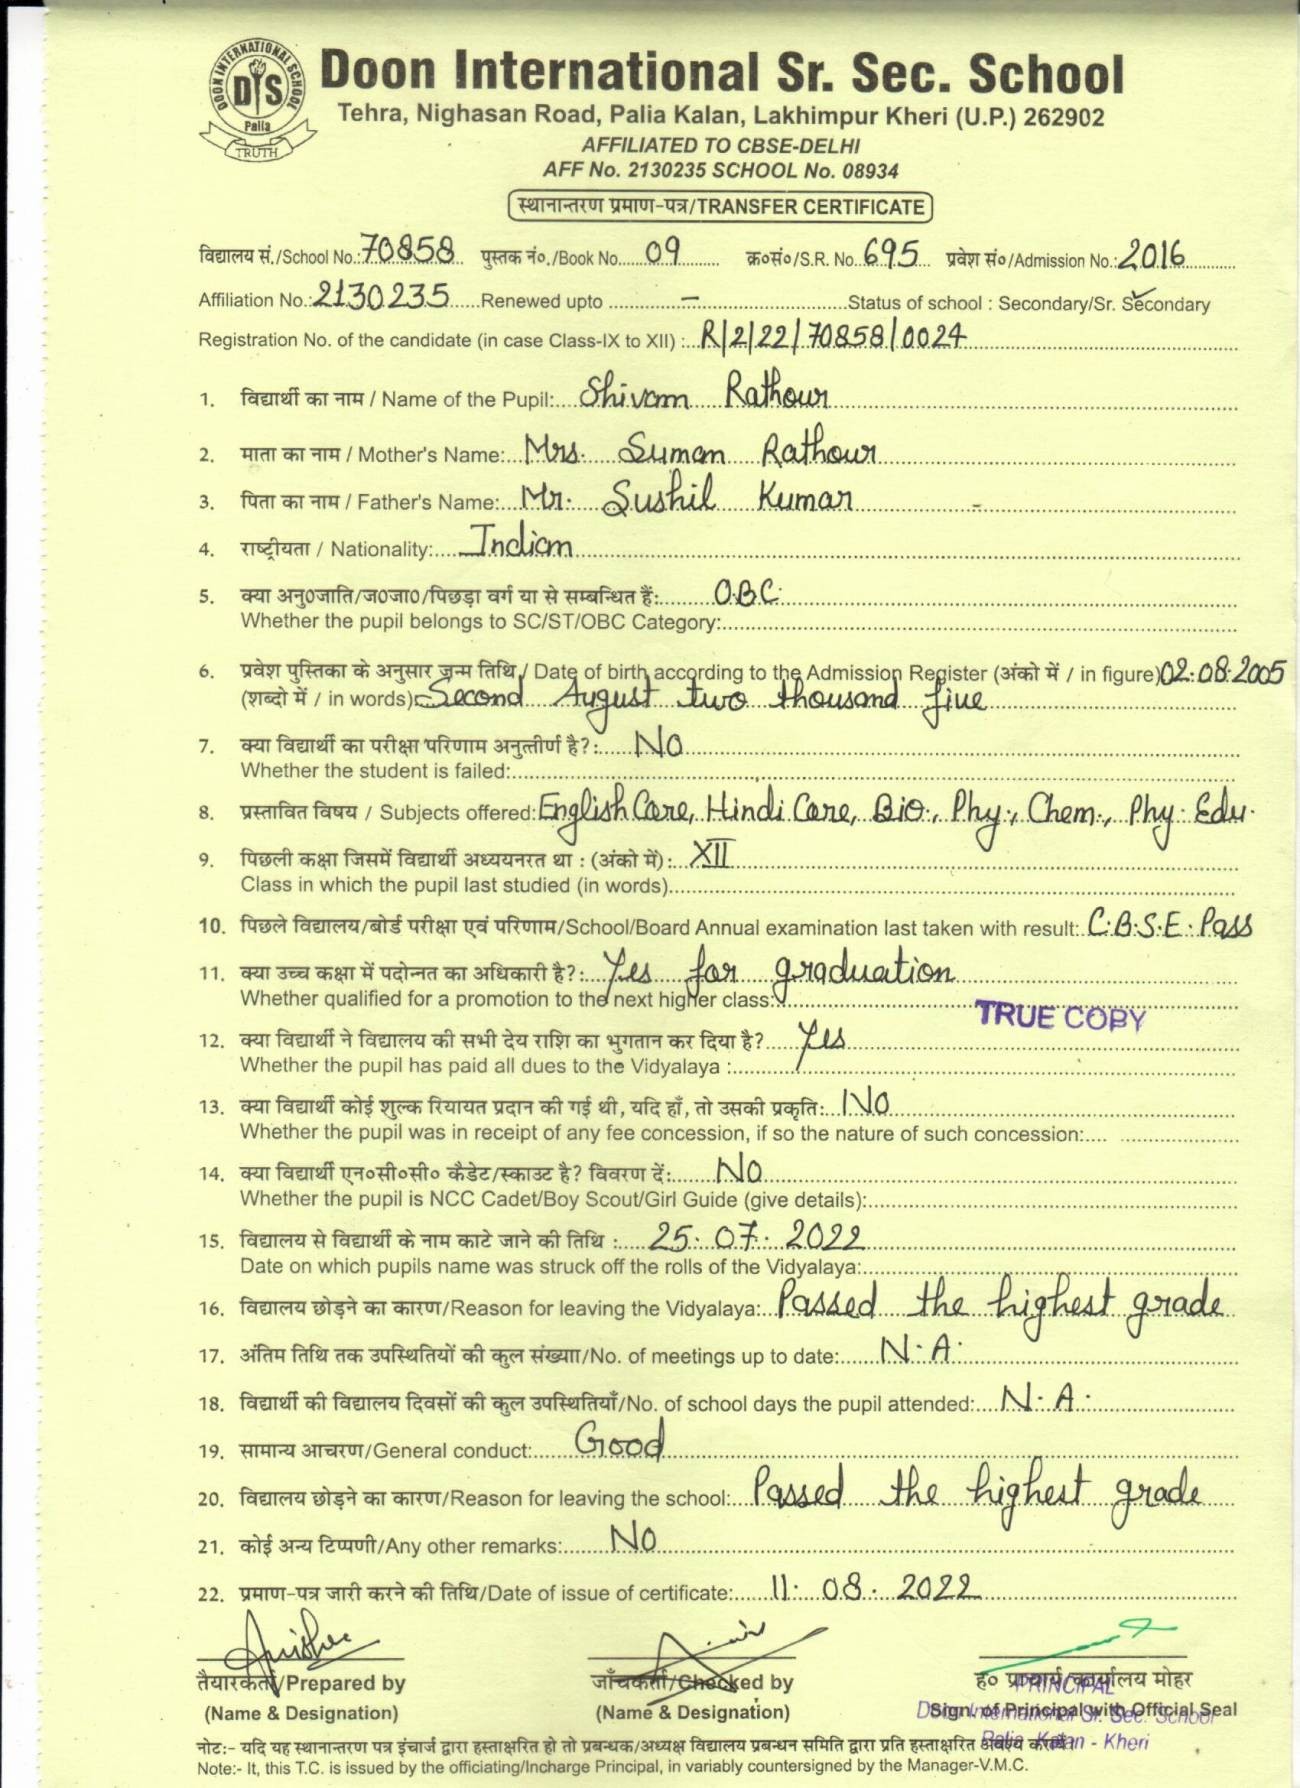 DOON INTERNATIONAL SCHOOL
DIS
Palia
TRUTH
Doon International Sr. Sec. School
Tehra, Nighasan Road, Palia Kalan, Lakhimpur Kheri (U.P.) 262902
AFFILIATED TO CBSE-DELHI
AFF No. 2130235 SCHOOL No. 08934
स्थानान्तरण प्रमाण-पत्र/TRANSFER CERTIFICATE
विद्यालय सं./School No.: 70858 पुस्तक नं०./Book No. 09 क्र०सं०/S.R. No. 695 प्रवेश सं०/Admission No.: 2016
Affiliation No.: 2130235 Renewed upto – Status of school : Secondary/Sr. Secondary
Registration No. of the candidate (in case Class-IX to XII) : R/2/22/70858/0024
1. विद्यार्थी का नाम / Name of the Pupil: Shivam Rathour
2. माता का नाम / Mother's Name: Mrs. Suman Rathour
3. पिता का नाम / Father's Name: Mr. Sushil Kumar
4. राष्ट्रीयता / Nationality: Indian
5. क्या अनु0जाति/ज0जा0/पिछड़ा वर्ग या से सम्बन्धित हैं: O.B.C.
Whether the pupil belongs to SC/ST/OBC Category:
6. प्रवेश पुस्तिका के अनुसार जन्म तिथि / Date of birth according to the Admission Register (अंको में / in figure) 02.08.2005
(शब्दो में / in words): Second August two thousand five
7. क्या विद्यार्थी का परीक्षा परिणाम अनुत्तीर्ण है?: No
Whether the student is failed:
8. प्रस्तावित विषय / Subjects offered: English Core, Hindi Core, Bio., Phy., Chem., Phy. Edu.
9. पिछली कक्षा जिसमें विद्यार्थी अध्ययनरत था : (अंको में): XII
Class in which the pupil last studied (in words)
10. पिछले विद्यालय/बोर्ड परीक्षा एवं परिणाम/School/Board Annual examination last taken with result: C.B.S.E. Pass
11. क्या उच्च कक्षा में पदोन्नत का अधिकारी है?: Yes for graduation
Whether qualified for a promotion to the next higher class:
TRUE COPY
12. क्या विद्यार्थी ने विद्यालय की सभी देय राशि का भुगतान कर दिया है? Yes
Whether the pupil has paid all dues to the Vidyalaya :
13. क्या विद्यार्थी कोई शुल्क रियायत प्रदान की गई थी, यदि हाँ, तो उसकी प्रकृति: No
Whether the pupil was in receipt of any fee concession, if so the nature of such concession:
14. क्या विद्यार्थी एन०सी०सी० कैडेट/स्काउट है? विवरण दें: No
Whether the pupil is NCC Cadet/Boy Scout/Girl Guide (give details):
15. विद्यालय से विद्यार्थी के नाम काटे जाने की तिथि : 25.07.2022
Date on which pupils name was struck off the rolls of the Vidyalaya:
16. विद्यालय छोड़ने का कारण/Reason for leaving the Vidyalaya: Passed the highest grade
17. अंतिम तिथि तक उपस्थितियों की कुल संख्या/No. of meetings up to date: N.A.
18. विद्यार्थी की विद्यालय दिवसों की कुल उपस्थितियाँ/No. of school days the pupil attended: N.A.
19. सामान्य आचरण/General conduct: Good
20. विद्यालय छोड़ने का कारण/Reason for leaving the school: Passed the highest grade
21. कोई अन्य टिप्पणी/Any other remarks: No
22. प्रमाण-पत्र जारी करने की तिथि/Date of issue of certificate: 11.08.2022
तैयारकर्ता/Prepared by जाँचकर्ता/Checked by ह० प्राचार्य कार्यालय मोहर
(Name & Designation) (Name & Designation) Sign. of Principal with Official Seal
PRINCIPAL
Doon International Sr. Sec. School
Palia Kalan - Kheri
नोट:- यदि यह स्थानान्तरण पत्र इंचार्ज द्वारा हस्ताक्षरित हो तो प्रबन्धक/अध्यक्ष विद्यालय प्रबन्धन समिति द्वारा प्रति हस्ताक्षरित अवश्य करायें।
Note:- It, this T.C. is issued by the officiating/Incharge Principal, in variably countersigned by the Manager-V.M.C.